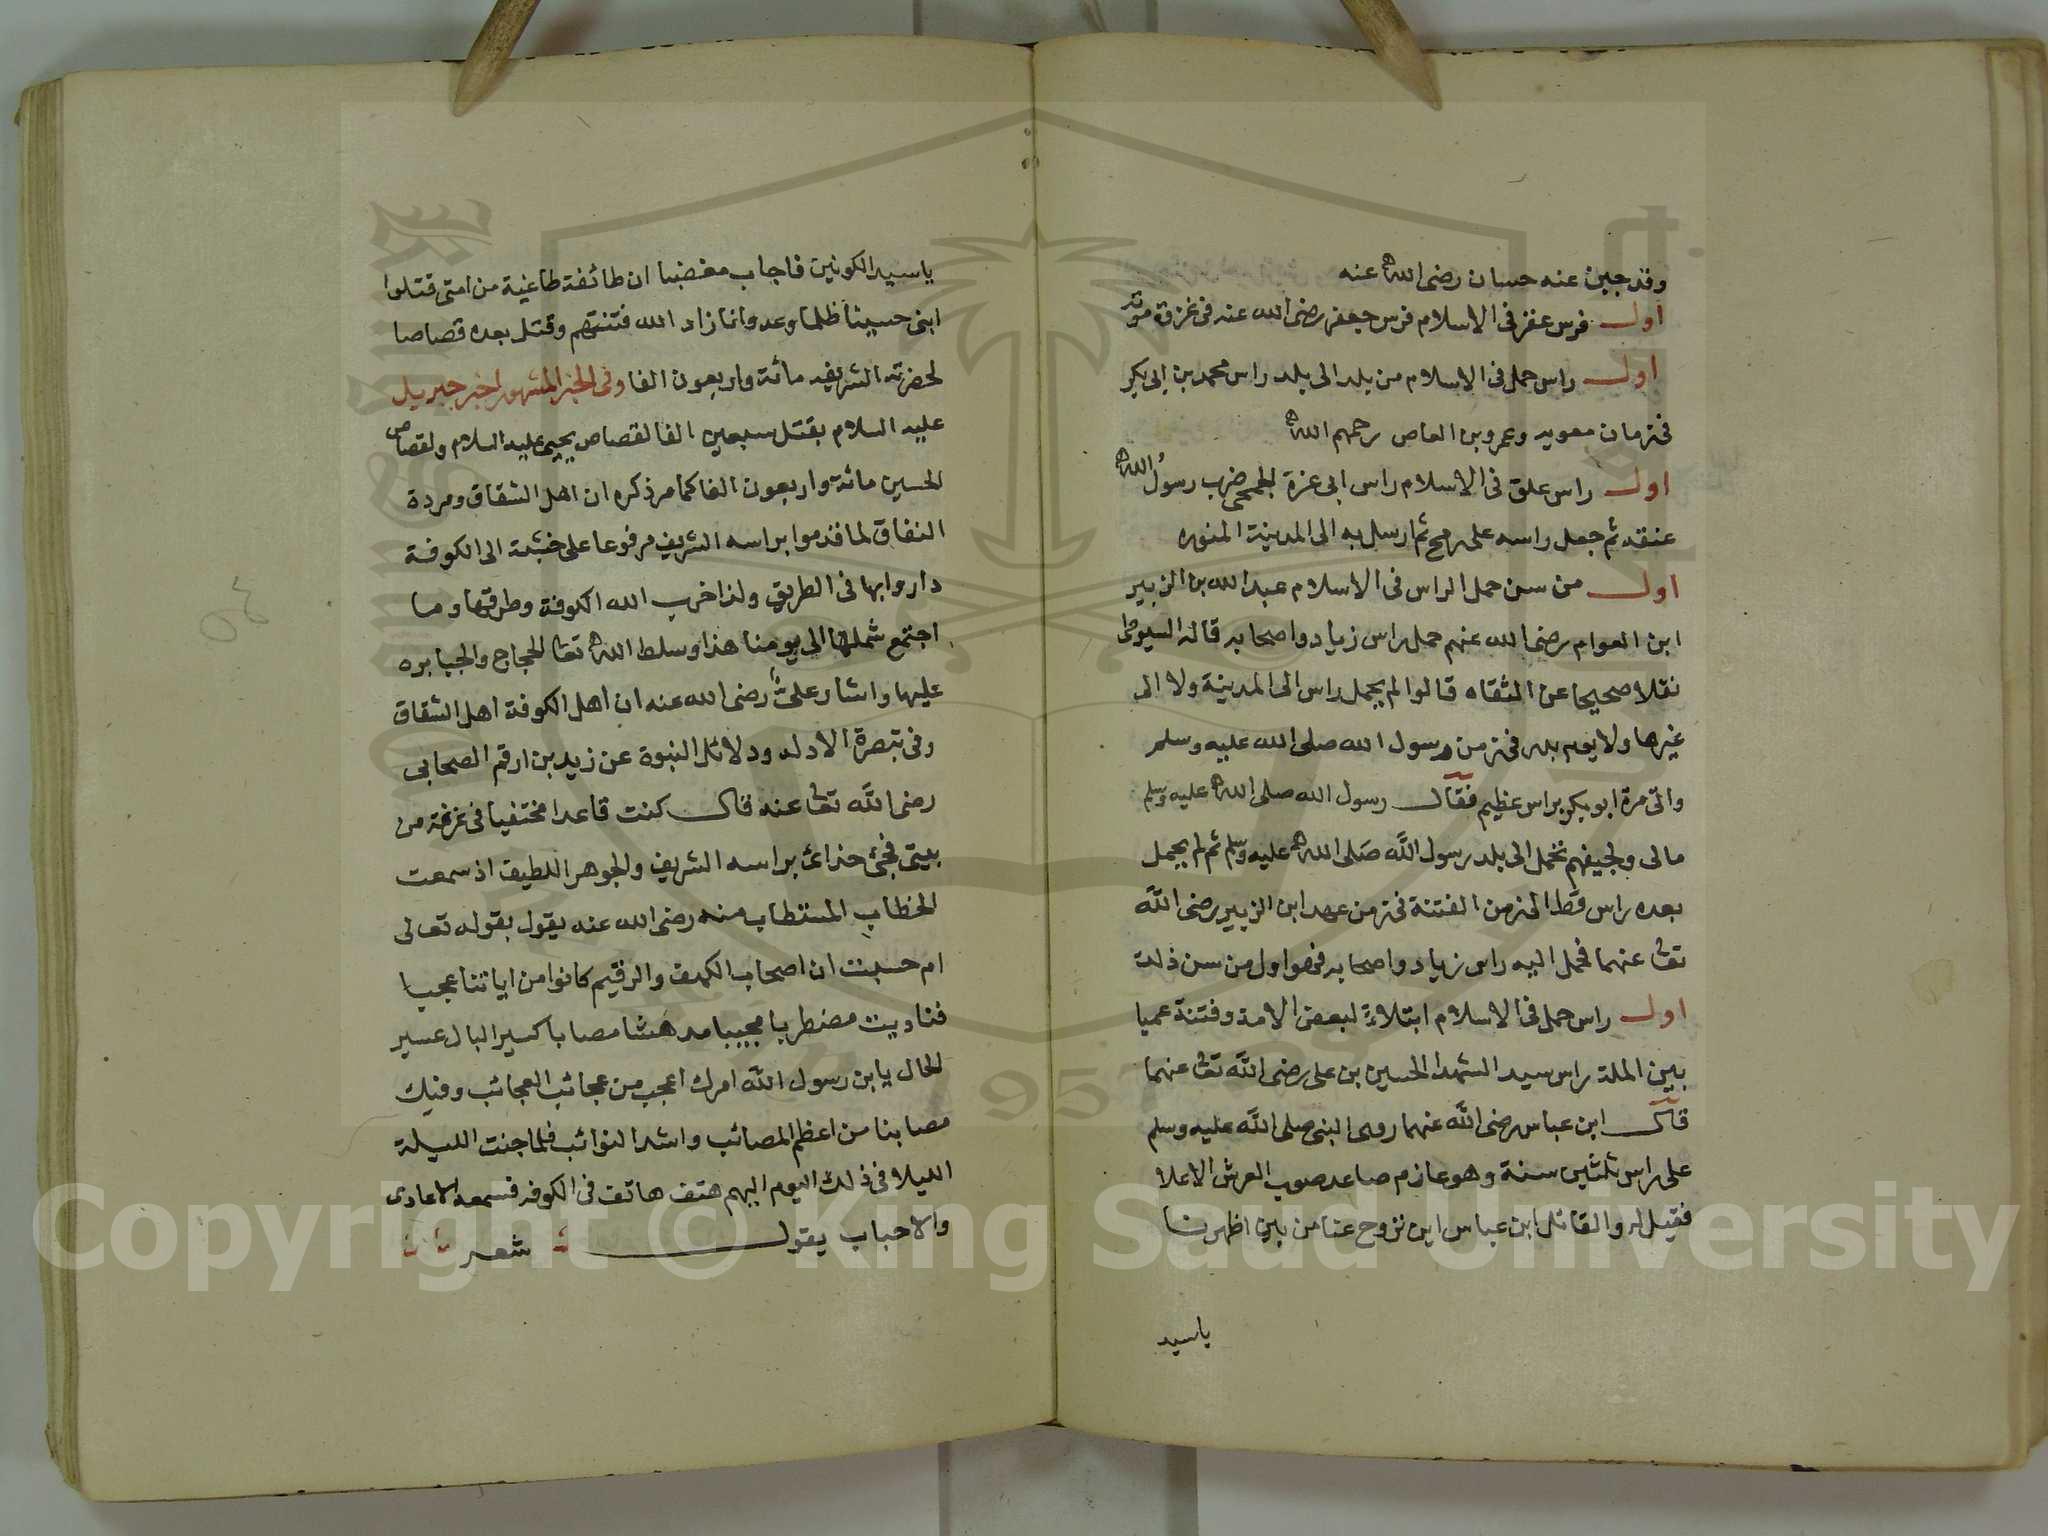 وقد جبن عنه حسان رضى الله عنه
اول فرس عقر فى الاسلام فرس جعفر رضى الله عنه فى غزوة موته
اول راس حمل فى الاسلام من بلد الى بلد راس محمد بن ابى بكر
فى زمان معويه وعمرو بن العاص رحمهم الله
اول راس علق فى الاسلام راس ابى عزة الجمحى ضرب رسول الله
عنقه ثم جعل راسه على رمح ثم ارسل به الى المدينة المنوره
اول من سن حمل الراس فى الاسلام عبد الله بن الزبير
ابن العوام رضى الله عنهم حمل راس زياد واصحابه قاله السيوطى
نقلا صحيحا عن الثقاه قالوا لم يحمل راس الى المدينة ولا الى
غيرها ولا يوم بدر فى زمن رسول الله صلى الله عليه وسلم
واتى مرة ابو بكر براس عظيم فقال رسول الله صلى الله عليه وسلم
مالى ولجيفهم تحمل الى بلد رسول الله صلى الله عليه وسلم ثم لم يحمل
بعده راس قط الى زمن الفتنة فى زمن عهد ابن الزبير رضى الله
تعا عنهما فحمل اليه راس زياد واصحابه فهو اول من سن ذلك
اول راس حمل فى الاسلام ابتلاءً لبعض الامة وفتنة عميا
بين الملة راس سيد الشهدا الحسين بن على رضى الله تعا عنهما
قال ابن عباس رضى الله عنهما روى النبى صلى الله عليه وسلم
على راس ثلثين سنة وهو عازم صاعد صوب العرش الاعلا
فقيل له والقائل ابن عباس اين تروح عنا من بين اظهرنا
ياسيد
ياسيد الكونين فاجاب مغضبا ان طائفة طاغية من امتى قتلوا
ابنى حسيناً ظلما وعدوانا زاد الله فتنتهم وقتل بعده قصاصا
لحضرته الشريفه مائة واربعون الفا وفى الخبر المشهور اخبر جبريل
عليه السلام بقتل سبعين الفا لقصاص يحيى عليه السلام ولقصاص
الحسين مائة واربعون الفا كما مر ذكره ان اهل الشقاق ومردة
النفاق لما قدموا براسه الشريف مرفوعا على خشبة الى الكوفة
داروا بها فى الطريق ولذا خرب الله الكوفة وطرقها وما
اجتمع شملها الى يومنا هذا وسلط الله تعا الحجاج والجبابره
عليها واشار على رضى الله عنه ان اهل الكوفة اهل الشقاق
وفى تبصرة الادله ودلائل النبوة عن زيد بن ارقم الصحابى
رضى الله تعا عنه قال كنت قاعدا مختفيا فى غرفة من
بيتى فجئ حذائ براسه الشريف والجوهر اللطيف اذ سمعت
الخطاب المستطاب منه رضى الله عنه يقول بقوله تعالى
ام حسبت ان اصحاب الكهف والرقيم كانوا من اياتنا عجبا
فناديت مضطربا مجيبا مدهشا مصابا كسير البال عسير
الحال يا بن رسول الله امرك اعجب من عجائب العجائب وفيك
مصابنا من اعظم المصائب واشد النوائب فلما جنت الليلة
الليلا فى ذلك اليوم البهم هتف هاتف فى الكوفه فسمعه الاعادى
والاحباب يقول شعر
Copyright © King Saud University
1957